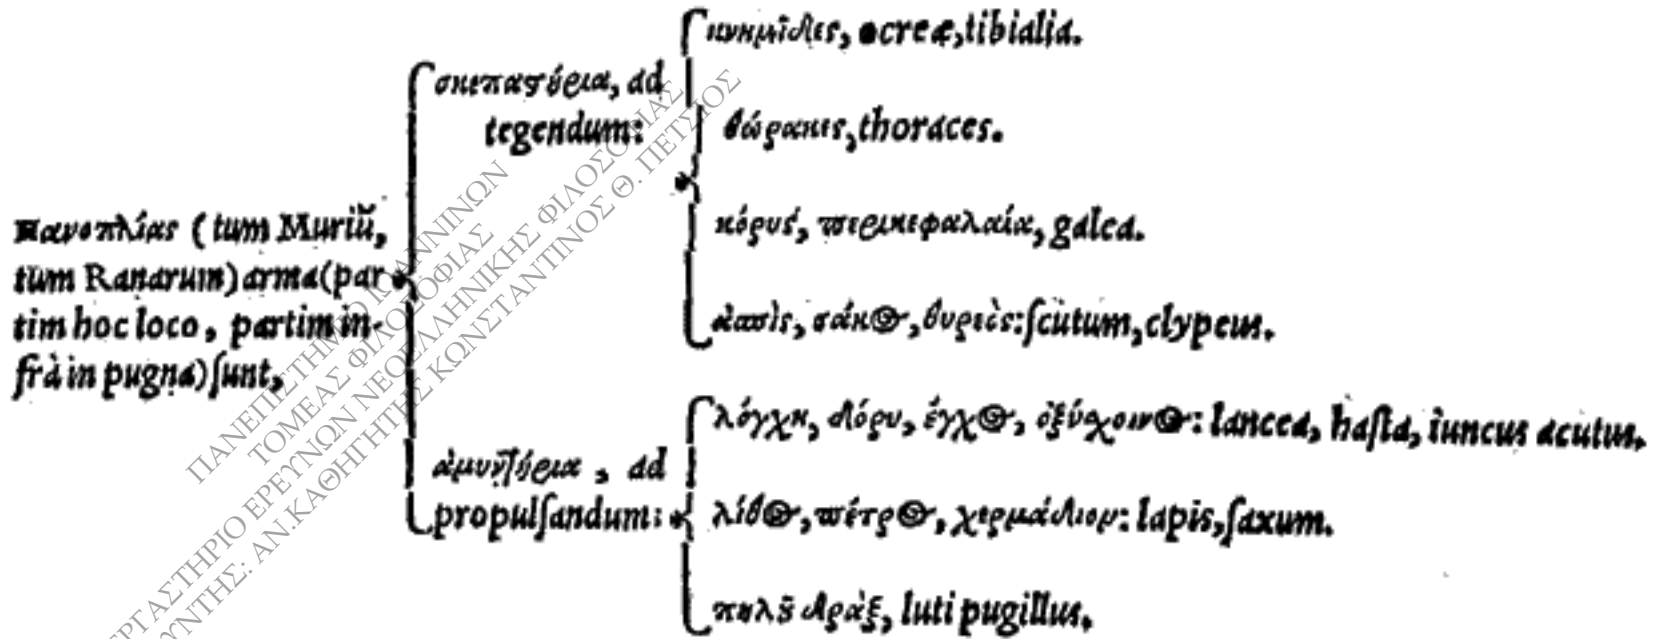 πανοπλίας (tum Muriũ,
tum Ranarum) arma (par
tim hoc loco, partim in-
frà in pugna) ſunt,
σκεπαστήρια, ad
tegendum:
κνημῖδες, ocreæ, tibialia.
θώρακες, thoraces.
κόρυς, περικεφαλαία, galea.
ἀσπὶς, σάκος, θυρεὸς: ſcutum, clypeus.
ἀμυντήρια, ad
propulſandum:
λόγχη, δόρυ, ἔγχος, ὀξύσχοινος: lancea, haſta, iuncus acutus.
λίθος, πέτρος, χερμάδιον: lapis, ſaxum.
πηλοῦ δράξ, luti pugillus.
ΠΑΝΕΠΙΣΤΗΜΙΟ ΙΩΑΝΝΙΝΩΝ
ΤΟΜΕΑΣ ΦΙΛΟΣΟΦΙΑΣ
ΕΡΓΑΣΤΗΡΙΟ ΕΡΕΥΝΩΝ ΝΕΟΕΛΛΗΝΙΚΗΣ ΦΙΛΟΣΟΦΙΑΣ
ΑΝ.ΚΑΘΗΓΗΤΗΣ ΚΩΝΣΤΑΝΤΙΝΟΣ Θ. ΠΕΤΣΙΟΣ